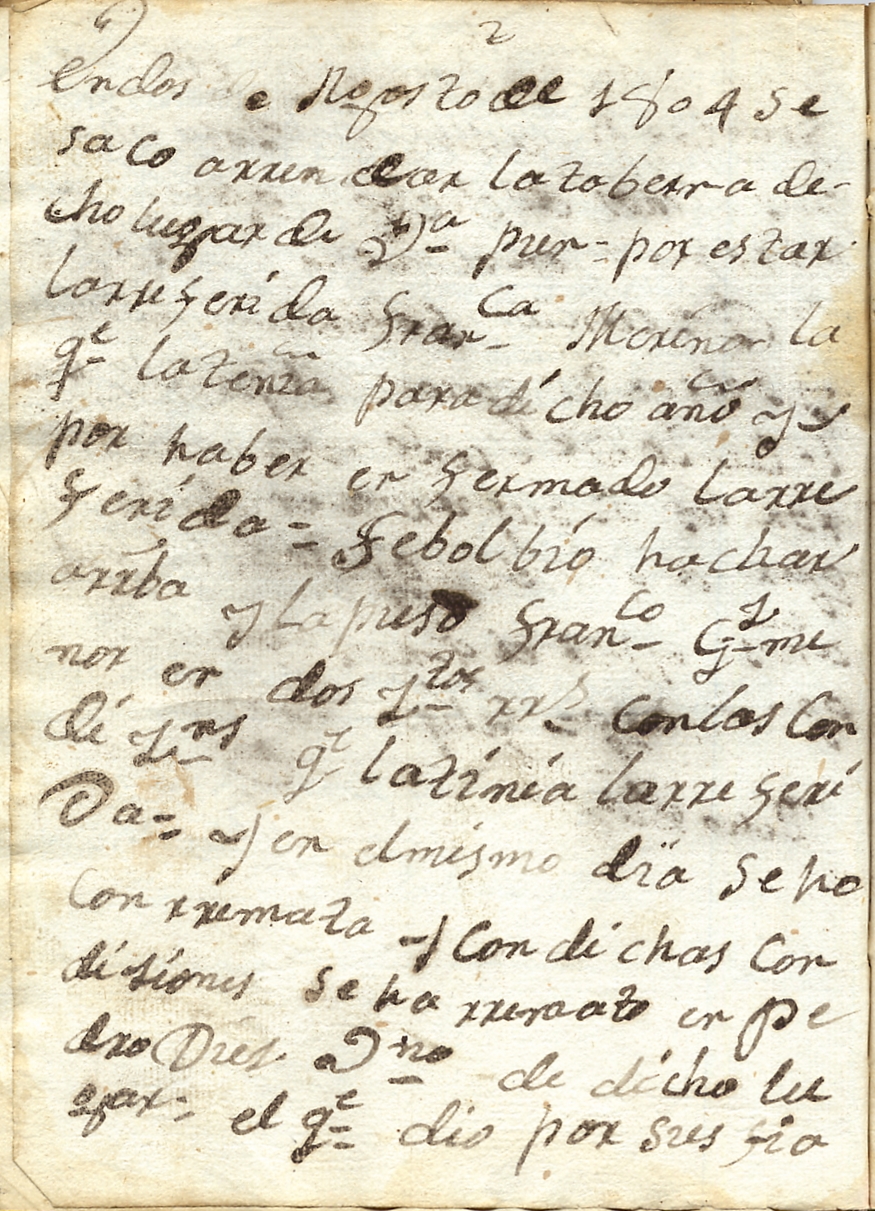 2
en dos de Agosto de 1804 se
saco arrendar la taberna de-
cho lugar de Dª puen= por estar
larreferida franca Merino la
qe la tenia para dicho año y
por haber en fermado larre
ferida= Se bolbio hachar
arriba y la puso franco
nor en dos rrs con las Con
di qe la tinia larreferi
Da= y en el mismo dia Se ho
Con rremata y Con dichas Con
disiones Se ha rremato en pe
dro Dies de dicho lu
gar= el qe dio por sus fia